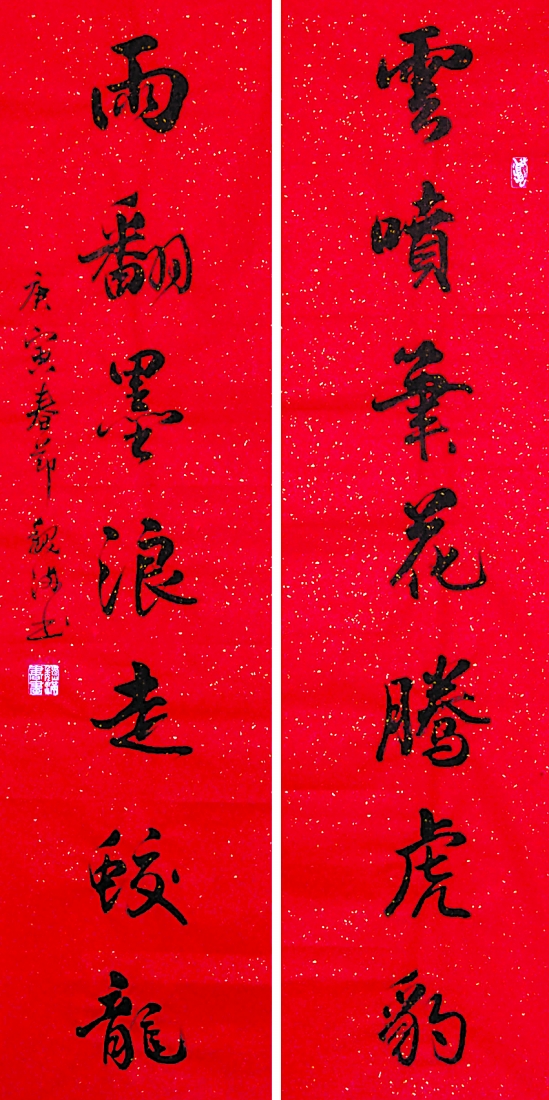 雲噴筆花騰虎豹
雨翻墨浪走蛟龍
庚寅春節